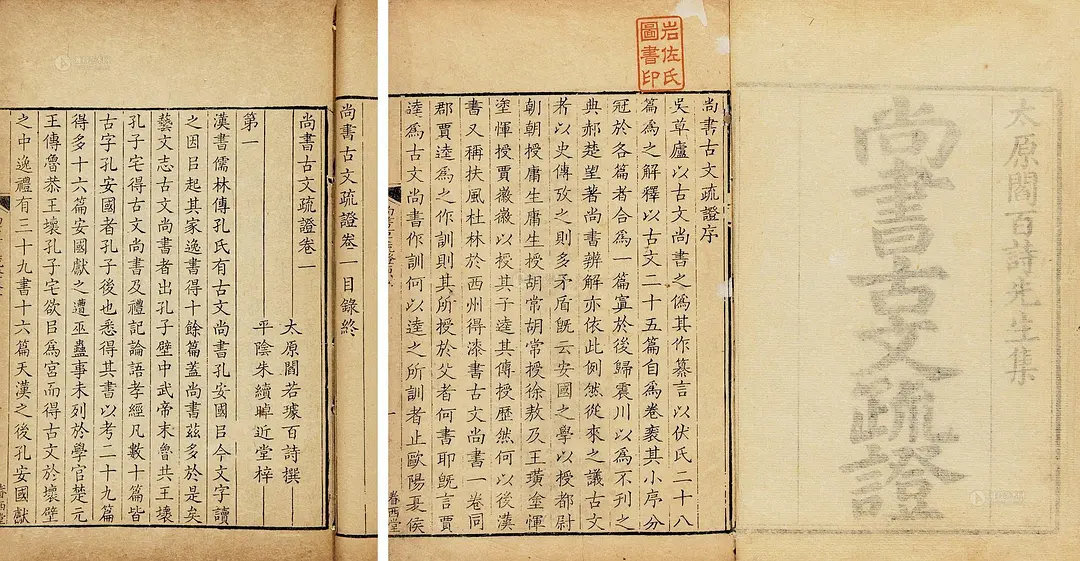 太原閻百詩先生集
尚書古文疏證
岩佐氏
圖書印
尚書古文疏證序
吳草廬以古文尚書之僞其作纂言以伏氏二十八
篇爲之解釋以古文二十五篇自爲卷袠其小序分
冠於各篇者合爲一篇寘於後歸震川以爲不刋之
典郝楚望著尚書辨解亦依此例然從來之議古文
者以史傳攷之則多矛盾旣云安國之學以授都尉
朝朝授庸生庸生授胡常胡常授徐敖及王璜塗惲
塗惲授賈徽徽以授其子逵其傳授歷然何以後漢
書又稱扶風杜林於西州得漆書古文尚書一卷同
郡賈逵爲之作訓則其所授於父者何書耶旣言賈
逵爲古文尚書作訓何以逵之所訓者止歐陽夏侯
一
眷西堂
尚書古文疏證卷一目錄終
尚書古文疏證卷一
太原閻若璩百詩撰
平陰朱續晫近堂梓
第一
漢書儒林傳孔氏有古文尚書孔安國㠯今文字讀
之因㠯起其家逸書得十餘篇蓋尚書茲多於是矣
藝文志古文尚書者出孔子壁中武帝末魯共王壞
孔子宅得古文尚書及禮記論語孝經凡數十篇皆
古字孔安國者孔子後也悉得其書以考二十九篇
得多十六篇安國獻之遭巫蠱事未列於學官楚元
王傳魯恭王壞孔子宅欲㠯爲宮而得古文於壞壁
之中逸禮有三十九書十六篇天漢之後孔安國獻
眷西堂